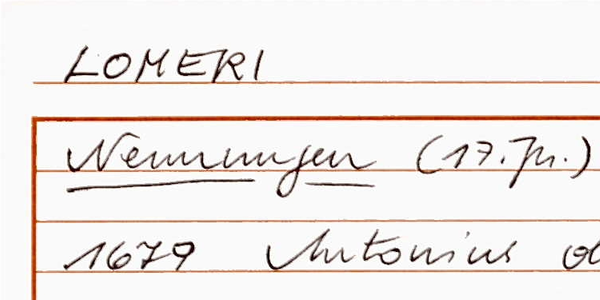 LOMERI
Nennungen (17. Jh.)
1679 Antonius